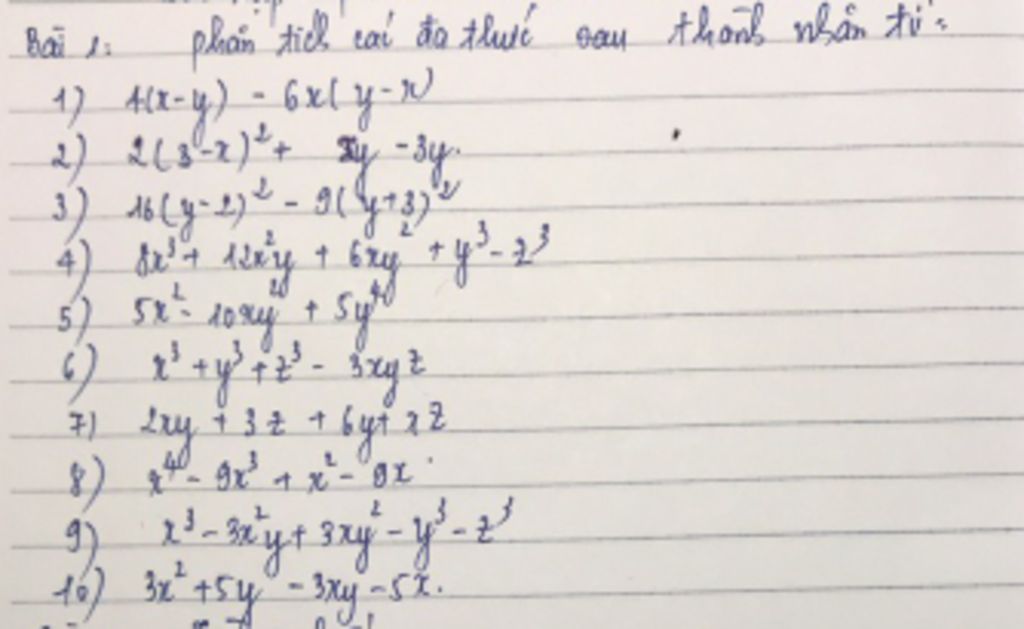 Bài 1: phân tích các đa thức sau thành nhân tử:
1) 4(x-y) - 6x(y-x)
2) 2(3-x)² + xy - 3y.
3) 16(y-2)² - 9(y+3)²
4) 8x³ + 12x²y + 6xy² + y³ - z³
5) 5x² - 10xy² + 5y⁴
6) x³ + y³ + z³ - 3xyz
7) 2xy + 3z + 6y + xz
8) x⁴ - 9x³ + x² - 9x
9) x³ - 3x²y + 3xy² - y³ - z³
10) 3x² + 5y - 3xy - 5x.